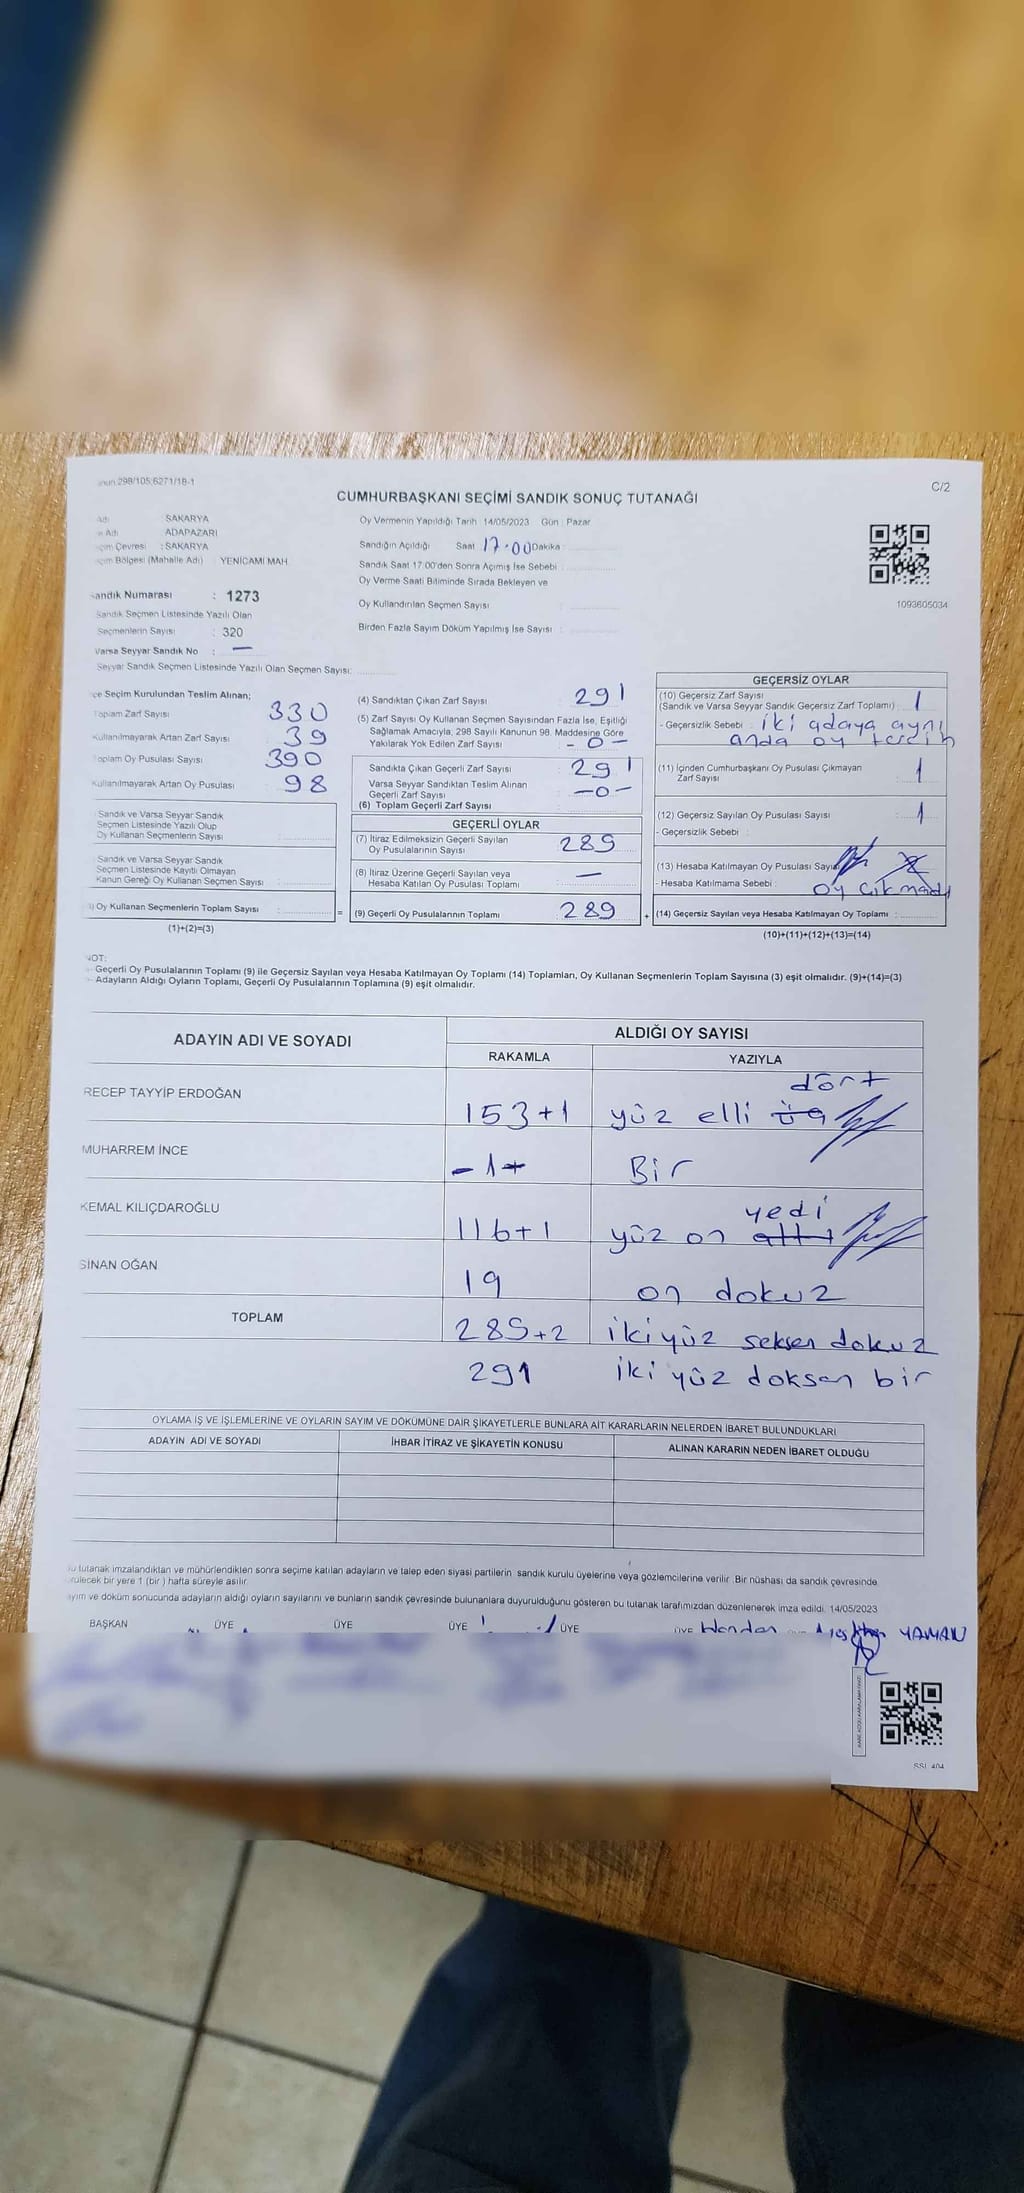 298/105;6271/18-1
C/2
CUMHURBAŞKANI SEÇİMİ SANDIK SONUÇ TUTANAĞI
Adı : SAKARYA
Adı : ADAPAZARI
Çevresi : SAKARYA
Bölgesi (Mahalle Adı) YENİCAMİ MAH.
Sandık Numarası : 1273
Sandık Seçmen Listesinde Yazılı Olan
Seçmenlerin Sayısı : 320
Varsa Seyyar Sandık No : —
Seyyar Sandık Seçmen Listesinde Yazılı Olan Seçmen Sayısı:
Oy Vermenin Yapıldığı Tarih 14/05/2023 Gün : Pazar
Sandığın Açıldığı Saat 17.00 Dakika :
Sandık Saat 17.00'den Sonra Açımış İse Sebebi :
Oy Verme Saati Bitiminde Sırada Bekleyen ve
Oy Kullandırılan Seçmen Sayısı
Birden Fazla Sayım Döküm Yapılmış İse Sayısı :
1093605034
İlçe Seçim Kurulundan Teslim Alınan;
Toplam Zarf Sayısı 330
Kullanılmayarak Artan Zarf Sayısı 39
Toplam Oy Pusulası Sayısı 390
Kullanılmayarak Artan Oy Pusulası 98
Sandık ve Varsa Seyyar Sandık
Seçmen Listesinde Yazılı Olup
Oy Kullanan Seçmenlerin Sayısı :
Sandık ve Varsa Seyyar Sandık
Seçmen Listesinde Kayıtlı Olmayan
Kanun Gereği Oy Kullanan Seçmen Sayısı :
Oy Kullanan Seçmenlerin Toplam Sayısı :
(1)+(2)=(3)
(4) Sandıktan Çıkan Zarf Sayısı : 291
(5) Zarf Sayısı Oy Kullanan Seçmen Sayısından Fazla İse, Eşitliği
Sağlamak Amacıyla, 298 Sayılı Kanunun 98. Maddesine Göre
Yakılarak Yok Edilen Zarf Sayısı : -0-
Sandıkta Çıkan Geçerli Zarf Sayısı : 291
Varsa Seyyar Sandıktan Teslim Alınan
Geçerli Zarf Sayısı : -0-
(6) Toplam Geçerli Zarf Sayısı :
GEÇERLİ OYLAR
(7) İtiraz Edilmeksizin Geçerli Sayılan
Oy Pusulalarının Sayısı : 289
(8) İtiraz Üzerine Geçerli Sayılan veya
Hesaba Katılan Oy Pusulası Toplamı : —
= (9) Geçerli Oy Pusulalarının Toplamı : 289
GEÇERSİZ OYLAR
(10) Geçersiz Zarf Sayısı
(Sandık ve Varsa Seyyar Sandık Geçersiz Zarf Toplamı) : 1
- Geçersizlik Sebebi : iki adaya aynı
anda oy tercih
(11) İçinden Cumhurbaşkanı Oy Pusulası Çıkmayan
Zarf Sayısı : 1
(12) Geçersiz Sayılan Oy Pusulası Sayısı : 1
- Geçersizlik Sebebi :
(13) Hesaba Katılmayan Oy Pusulası Sayısı
- Hesaba Katılmama Sebebi : oy çıkmadı
+ (14) Geçersiz Sayılan veya Hesaba Katılmayan Oy Toplamı :
(10)+(11)+(12)+(13)=(14)
NOT:
- Geçerli Oy Pusulalarının Toplamı (9) ile Geçersiz Sayılan veya Hesaba Katılmayan Oy Toplamı (14) Toplamları, Oy Kullanan Seçmenlerin Toplam Sayısına (3) eşit olmalıdır. (9)+(14)=(3)
- Adayların Aldığı Oyların Toplamı, Geçerli Oy Pusulalarının Toplamına (9) eşit olmalıdır.
ADAYIN ADI VE SOYADI
ALDIĞI OY SAYISI
RAKAMLA YAZIYLA
RECEP TAYYİP ERDOĞAN 153+1 yüz elli üç dört
MUHARREM İNCE -1+ Bir
KEMAL KILIÇDAROĞLU 116+1 yüz on altı yedi
SİNAN OĞAN 19 on dokuz
TOPLAM 289+2 ikiyüz seksen dokuz
291 iki yüz doksan bir
OYLAMA İŞ VE İŞLEMLERİNE VE OYLARIN SAYIM VE DÖKÜMÜNE DAİR ŞİKAYETLERLE BUNLARA AİT KARARLARIN NELERDEN İBARET BULUNDUKLARI
ADAYIN ADI VE SOYADI İHBAR İTİRAZ VE ŞİKAYETİN KONUSU ALINAN KARARIN NEDEN İBARET OLDUĞU
Bu tutanak imzalandıktan ve mühürlendikten sonra seçime katılan adayların ve talep eden siyasi partilerin sandık kurulu üyelerine veya gözlemcilerine verilir. Bir nüshası da sandık çevresinde
görülecek bir yere 1 (bir ) hafta süreyle asılır.
Sayım ve döküm sonucunda adayların aldığı oyların sayılarını ve bunların sandık çevresinde bulunanlara duyurulduğunu gösteren bu tutanak tarafımızdan düzenlenerek imza edildi. 14/05/2023
BAŞKAN ÜYE ÜYE ÜYE ÜYE ÜYE YAMAN
SSL 404